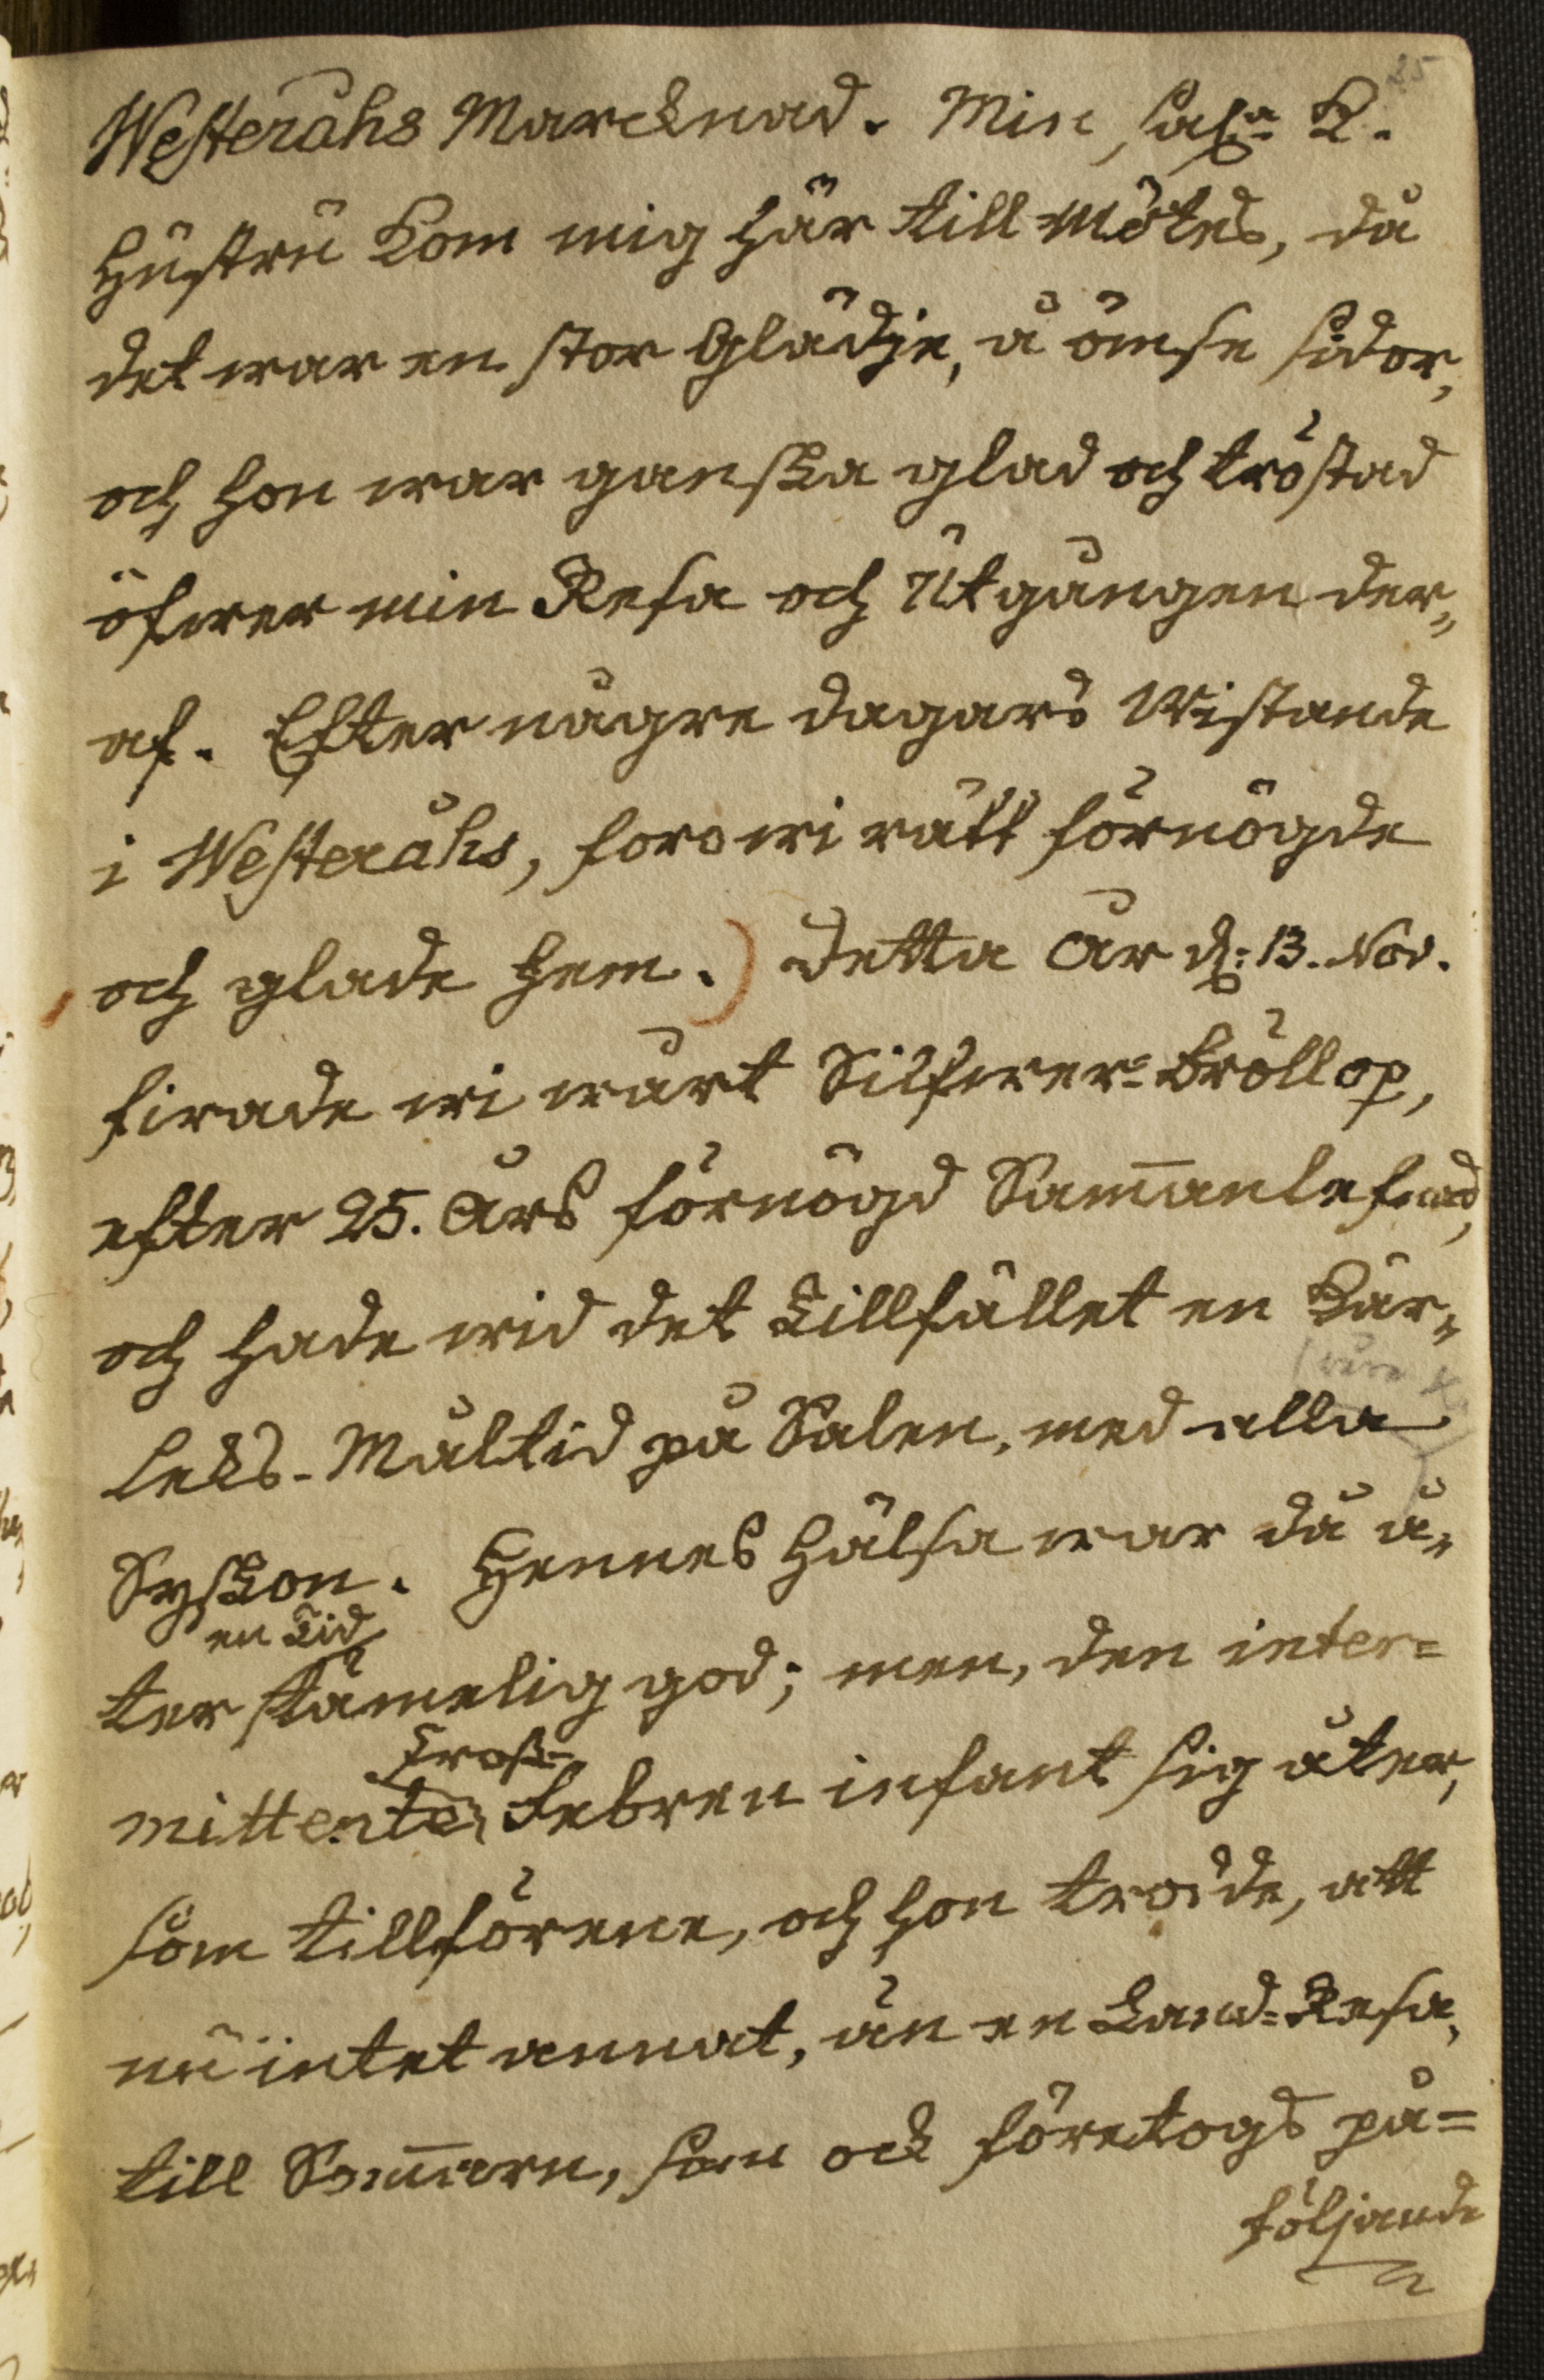 25
Westeråhs Marcknad. Min sal:a K.
Hustru kom mig här till mötes, då
det war en stor Glädje, å ömse sidor,
och hon war ganska glad och tröstad
öfwer min Resa och Utgången der„
af. Efter någre dagars Wistande
i Westeråhs, foro wi rätt förnögde
och glade hem.) Detta År d: 13. Nov.
firade wi wårt Silfwer-Bröllop,
efter 25. Års förnögd Samanlefnad,
och hade wid det Tillfället en Kär„
leks-Måltid på Salen, med alla
Syskon. Hennes Hälsa war då å„
en Tid
ter tämelig god; men, den inter=
Fross-
mittente Febren infant sig åter,
som tillförene, och hon trodde, att
nu intet annat, än en Land-Resa,
till Somaren, som ock företogs på=
följande